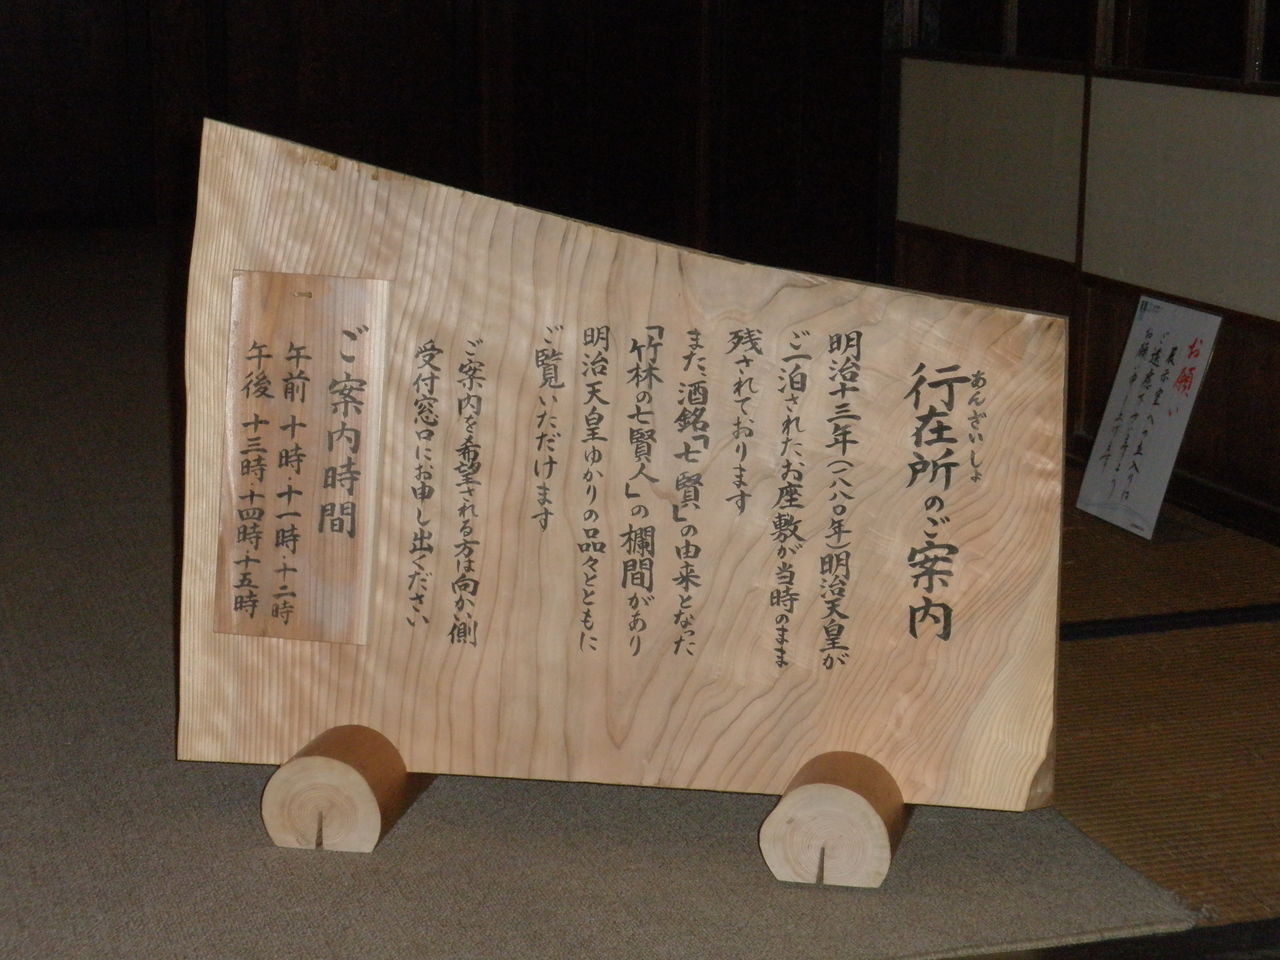 行在所のご案内
あんざいしょ
明治十三年(一八八〇年)明治天皇が
ご一泊されたお座敷が当時のまま
残されております
また酒銘「七賢」の由来となった
「竹林の七賢人」の欄間があり
明治天皇ゆかりの品々とともに
ご覧いただけます
ご案内を希望される方は向かい側
受付窓口にお申し出ください
ご案内時間
午前 十時・十一時 十二時
午後 十三時 十四時 十五時
お願い
展示室への立入りは
ご遠慮下さいますよう
お願い申し上げます